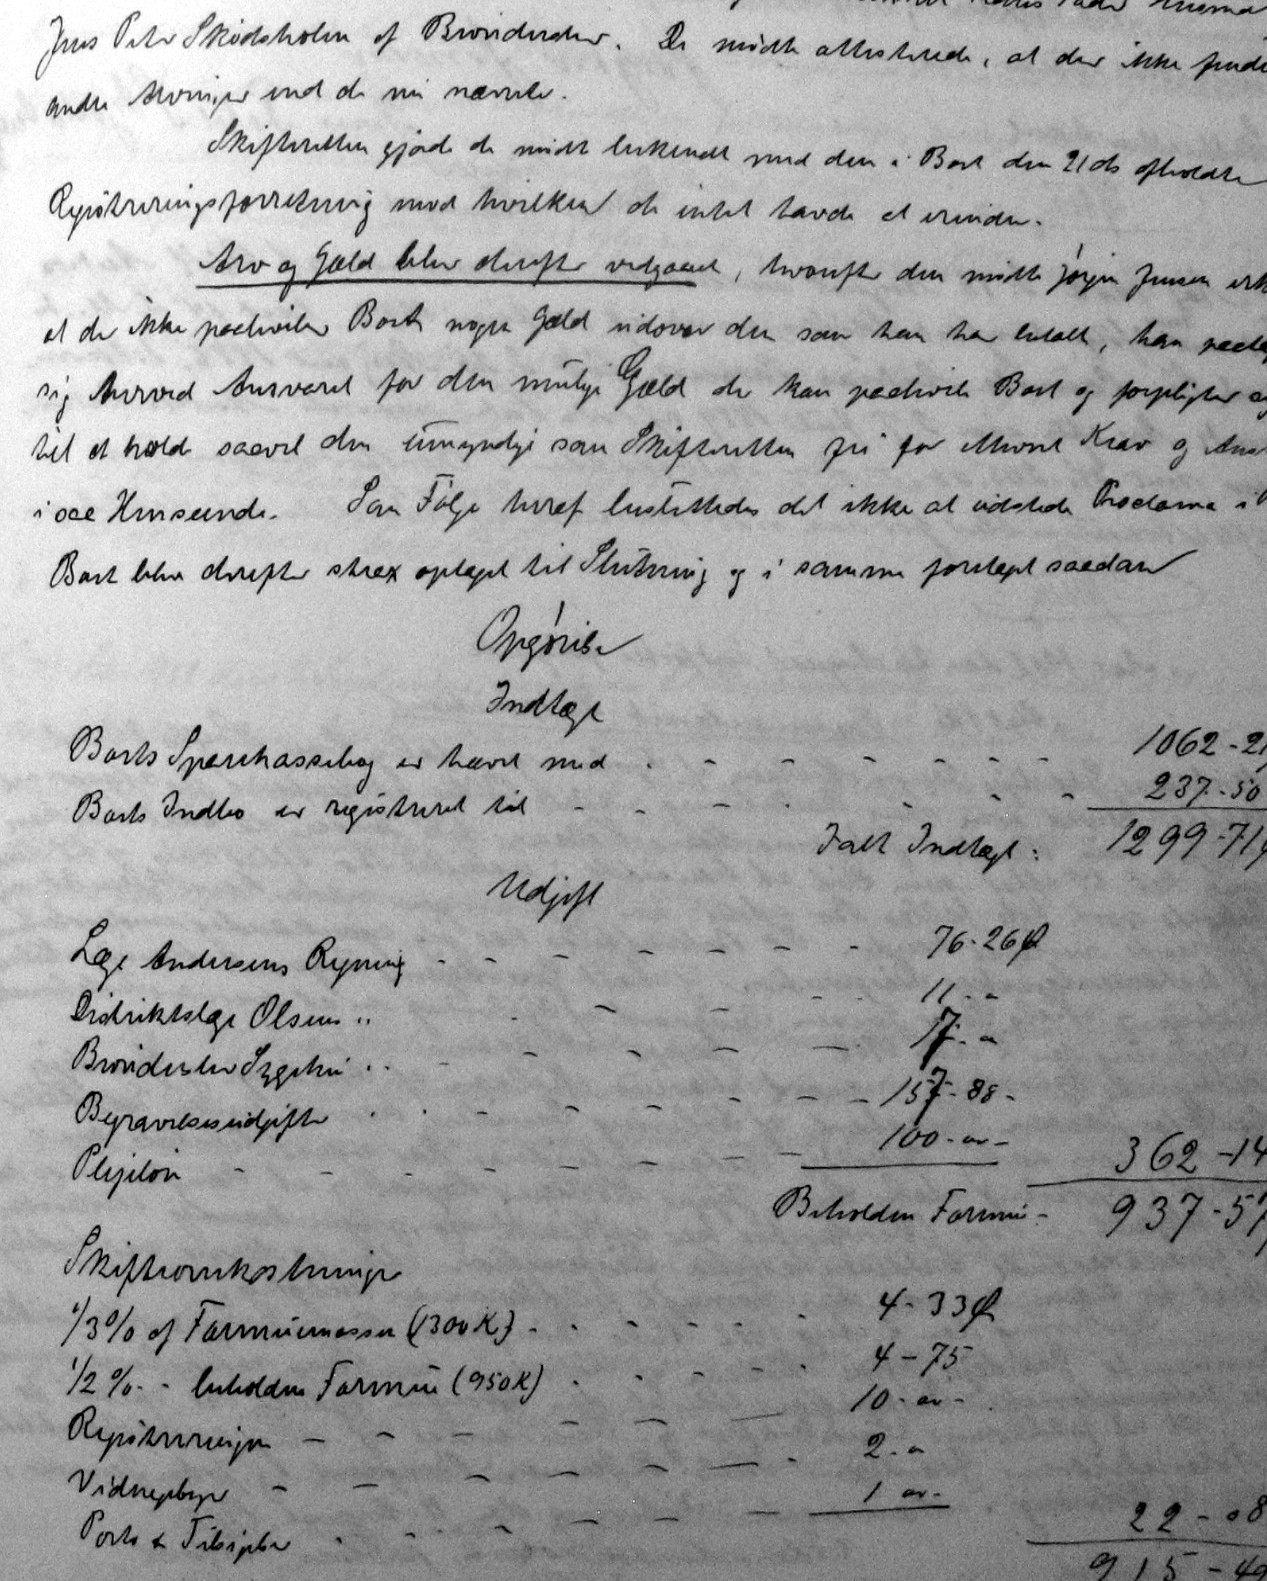 Jens Peter Skødsholm af Brønderslev. De mødte attesterede, at der ikke finde
andre Arvinger end de nu nævnte.
Skifteretten gjorde de mødte bekendt med den i Boet den 21 ds afholdte
Registreringsforretning mod hvilken de intet havde at erindre.
Arv og Gæld blev derefter vedgaaet, hvorefter den mødte Jørgen Jensen erk
at der ikke paahviler Boet nogen Gæld udover den som han har betalt, han paata
sig hvorved Ansvaret for den mulige Gæld der kan paahvile Boet og forpligter
til at holde saavel den umyndige som Skifteretten fri for ethvert Krav og Ans
i saa Henseende. Som Følge heraf besluttedes det ikke at udstede Proclama i
Boet blev derefter strax optaget til Slutning og i samme foretaget saadan
Opgørelse
Indtægt
Boets Sparekassebog er hævet med 1062-21
Boets Indbo er registreret til 237-50
Ialt Indtægt: 1299-71
Udgift
Læge Andersens Regning 76-26 Ø
Distriktslæge Olsens " 11 - "
Brønderslev Sygehus " 17 - "
Begravelsesudgifter 157-88 -
Plejeløn 100 - " - 362-14
Beholden Formue - 937-57
Skifteomkostninger
1/3 % af Formuemassen (1300 K) 4-33 Ø
1/2 % - - beholden Formue (950 K) 4-75
Registreringen 10 - " -
Vidnegebyr 2 - "
Porto & Tilsigelser 1 " - 22-08
915-49